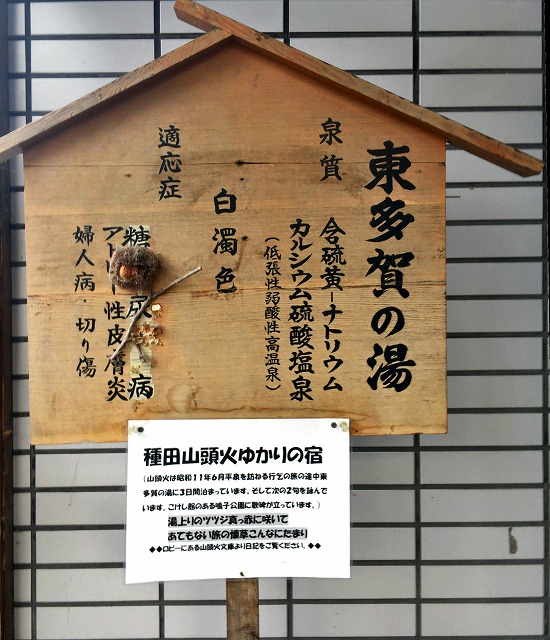 東多賀の湯
泉質
含硫黄ーナトリウム
カルシウム硫酸塩泉
(低張性弱酸性高温泉)
白濁色
適応症
糖尿病
アトピー性皮膚炎
婦人病・切り傷
種田山頭火ゆかりの宿
(山頭火は昭和11年6月平泉を訪ねる行乞の旅の途中東
多賀の湯に3日間泊まっています。そして次の2句を詠んで
います。こけし館のある鳴子公園に歌碑が立っています。)
湯上りのツツジ真っ赤に咲いて
あてもない旅の懐草こんなにたまり
◆◆ロビーにある山頭火文庫より日記をご覧ください。◆◆